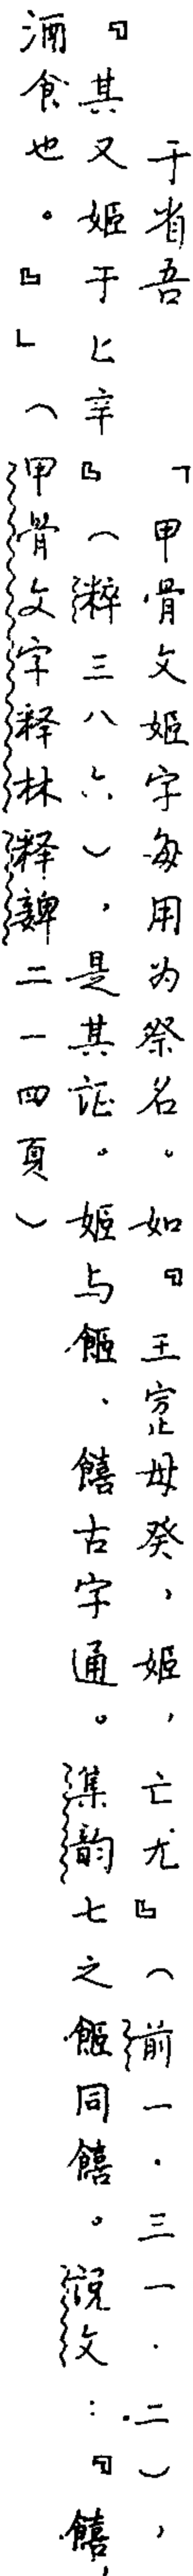 于省吾　「甲骨文姬字每用为祭名。如『王𡧊母癸，姬，亡尤』（前一·三一·二），
『其又姬于匕辛』（粹三八六），是其证。姬与䬣、饎古字通。集韵七之䬣同饎。说文：『饎，
酒食也。』」（甲骨文字释林释婢二一四頁）